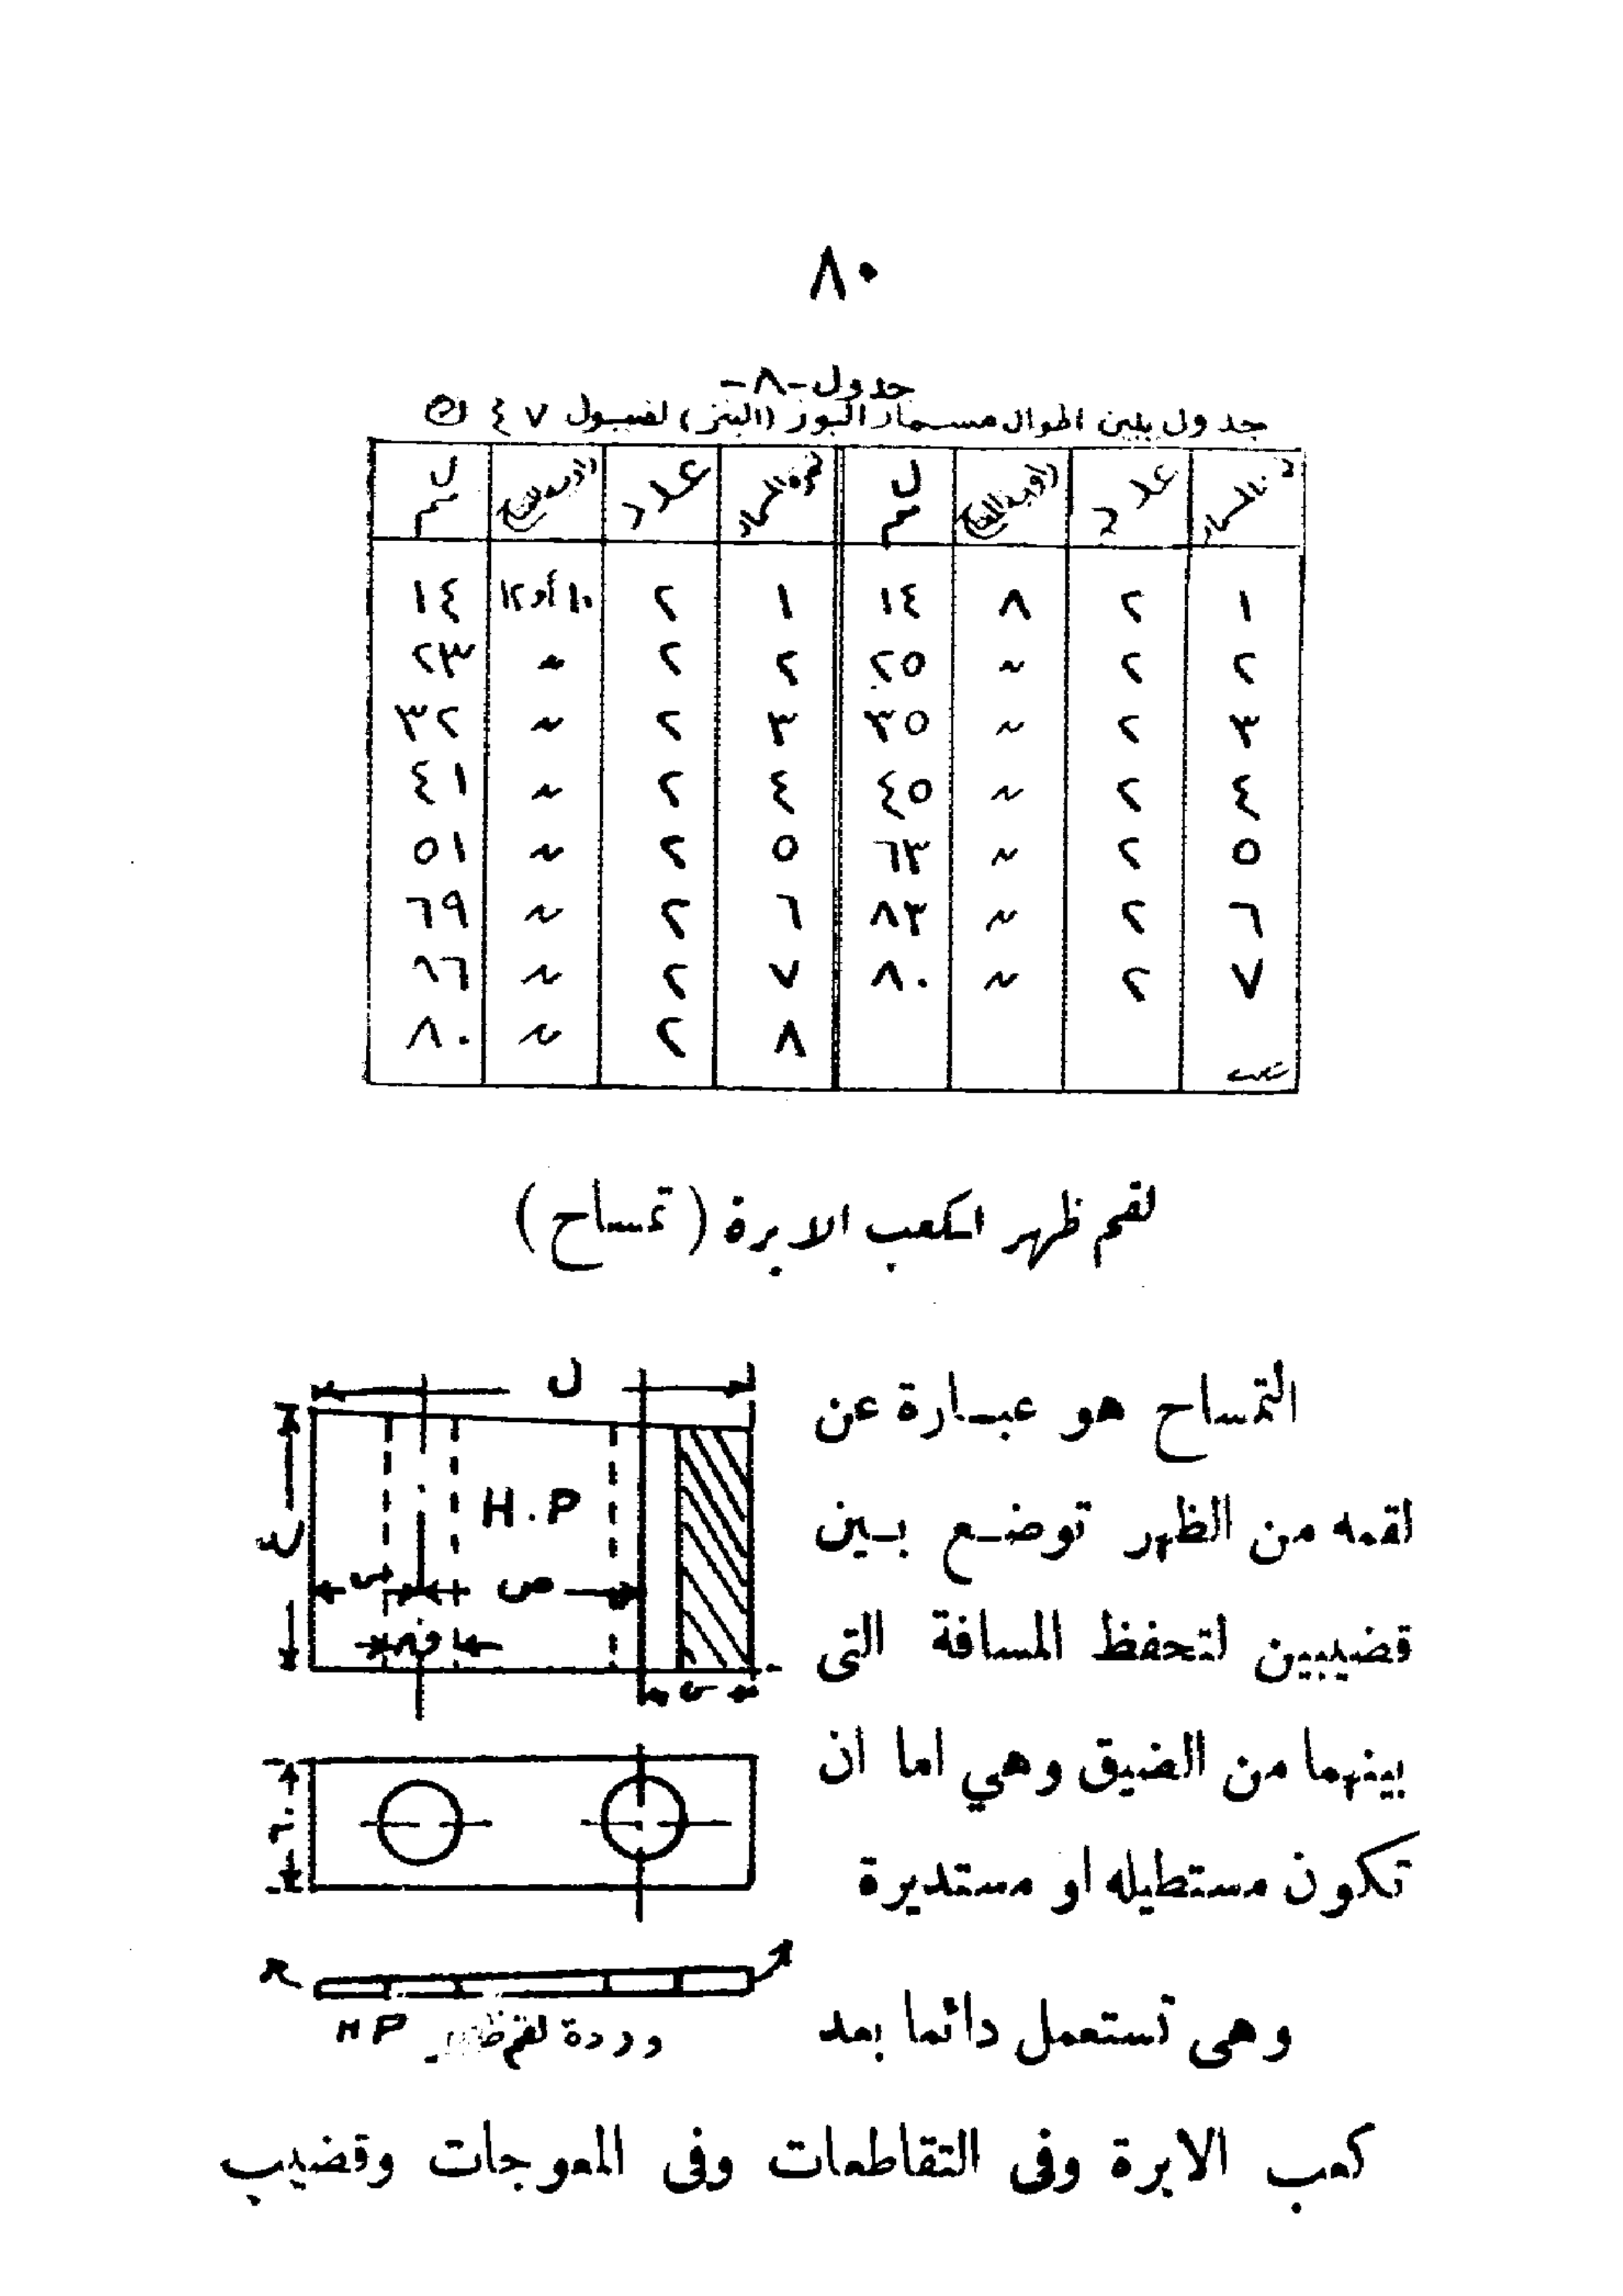 ٨٠
جدول -٨-
جدول يبين اطوال مسمار البوز (البنز) لفسول ٤٧ ك
نمرة المسمار عدد زاوية التقاطع ل سم نمرة المسمار عدد زاوية التقاطع ل سم
١ ٢ ٨ ١٤ ١ ٢ ١٠ أو ١٢ ١٤
٢ ٢ ~ ٢٥ ٢ ٢ ~ ٢٣
٣ ٢ ~ ٣٥ ٣ ٢ ~ ٣٢
٤ ٢ ~ ٤٥ ٤ ٢ ~ ٤١
٥ ٢ ~ ٦٣ ٥ ٢ ~ ٥١
٦ ٢ ~ ٨٣ ٦ ٢ ~ ٦٩
٧ ٢ ~ ٨٠ ٧ ٢ ~ ٨٦
٨ ٢ ~ ٨٠
لقم ظهر الكعب الابرة ( تمساح )
التمساح هو عبارة عن
لقمه من الظهر توضع بين
قضيبين لتحفظ المسافة التى
بينهما من الضيق وهي اما ان
تكون مستطيله او مستديرة
وهى تستعمل دائما بعد
كعب الابرة وفى التقاطعات وفى المعوجات وقضيب
ل
H.P
س
ص
س
وردة لقم ظهر HP